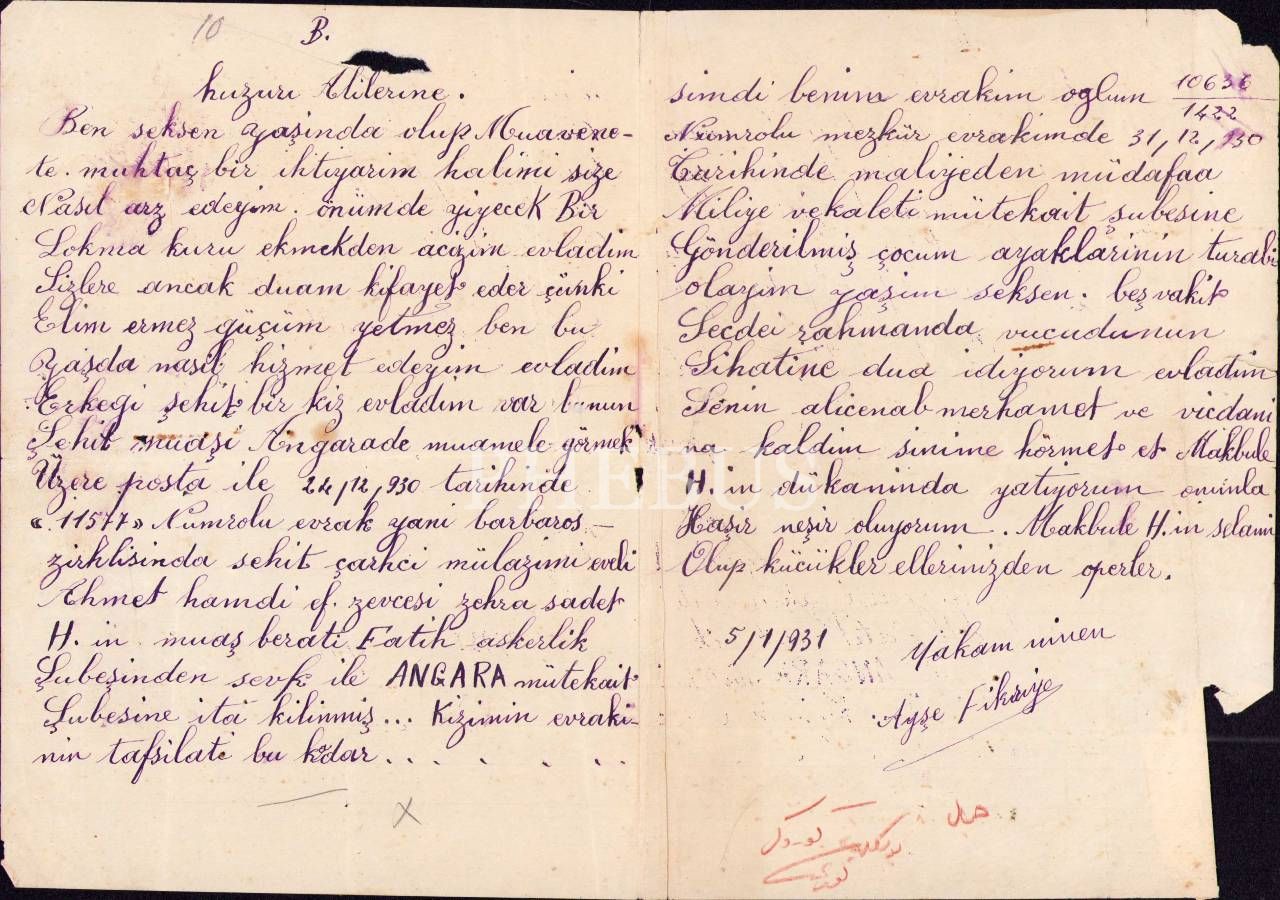 10 B.
huzuri Alilerine.
Ben seksen yaşinda olup Muavene-
te. muhtaç bir ihtiyarim halimi size
Nasıl arz edeyim. önümde yiyecek Bir
Lokma kuru ekmekden acizim evladim
Sizlere ancak duam kifayet eder çünki
Elim ermez güçüm yetmez ben bu
yaşda nasıl hizmet edeyim evladim
Erkegi şehit bir kiz evladim var bunun
Şehit muaşi Angarade muamele görmek
Üzere posta ile 24/12/930 tarihinde
«11577» Numrolu evrak yani barbaros -
zirhlisinda şehit çarhci mülazimi eveli
Ahmet hamdi ef. zevcesi zehra sadet
H. in muaş berati Fatih askerlik
Şubeşinden sevk ile ANGARA mütekait
Şubesine ita kilinmiş... Kizimin evraki-
nin tafsilati bu kadar . . . . . . .
simdi benim evrakim oglum 10636/1422
Numrolu mezkür evrakimde 31,12,930
Tarihinde maliyeden müdafaa
Miliye vekaleti mütekait şubesine
Gönderilmiş çocum ayaklarinin turabi
olayim yaşim seksen. beş vakit
Secdei rahmanda vucudunun
Sihatine dua idiyorum evladim
Senin alicenab merhamet ve vicdani
na kaldim sinime hörmet et Makbule
H. in dükaninda yatiyorum onunla
Haşır neşir oluyorum. Makbule H. in selami
Olup kücükler ellerinizden operler.
5/1/931
yakam ninen
Ayşe Fikriye
THEBUS